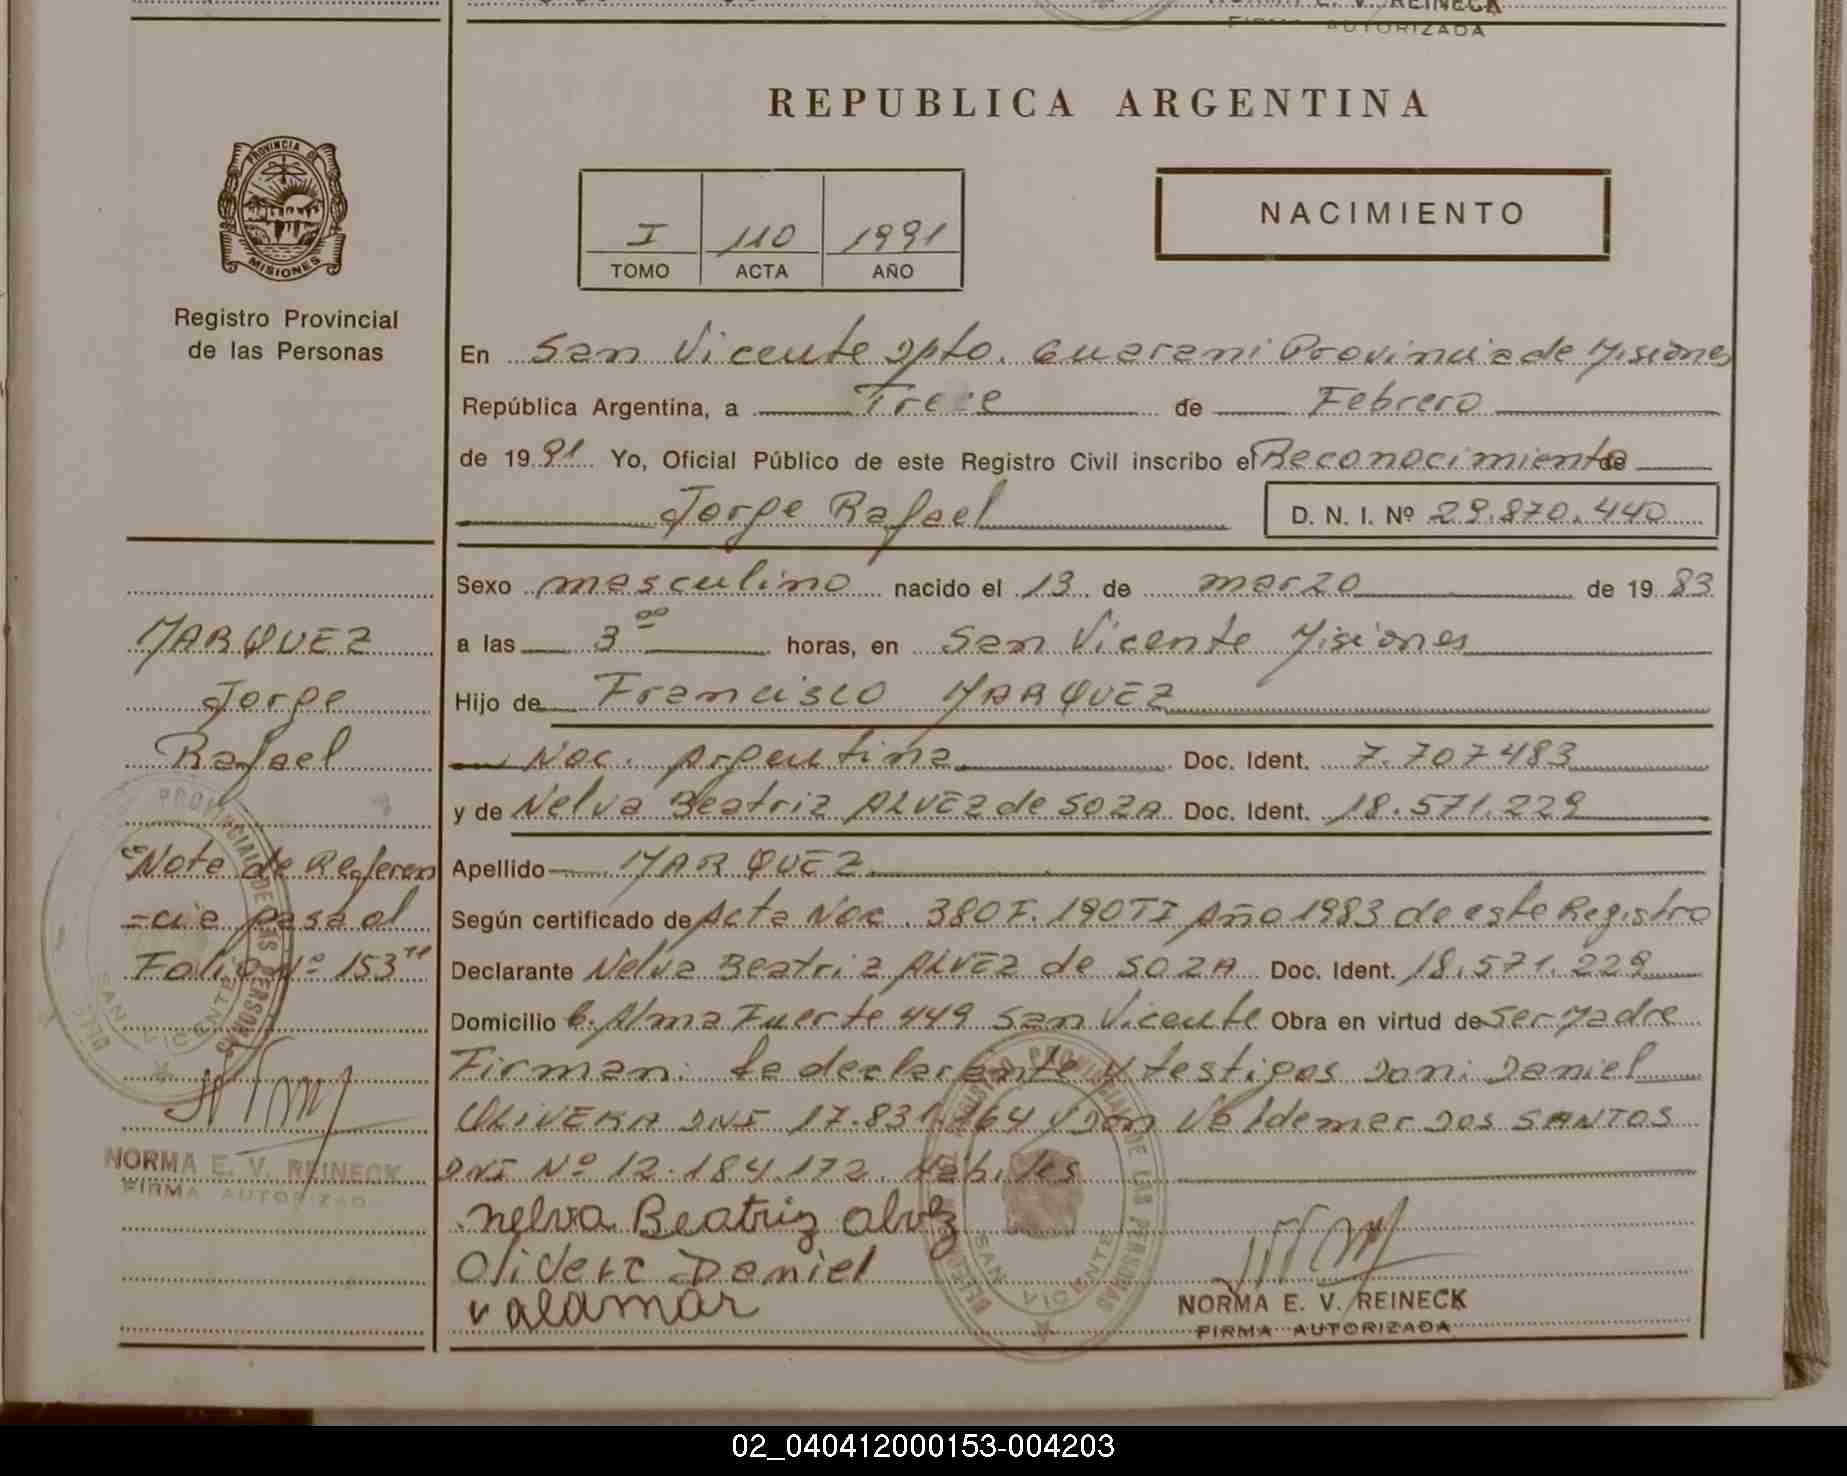 NORMA E. V. REINECK
FIRMA AUTORIZADA
REPUBLICA ARGENTINA
PROVINCIA DE
MISIONES
Registro Provincial
de las Personas
I 110 1991
TOMO ACTA AÑO
NACIMIENTO
En San Vicente Dpto. Guarani Provincia de Misiones
República Argentina, a Trece de Febrero
de 1991 Yo, Oficial Público de este Registro Civil inscribo el Reconocimiento de
Jorge Rafael D. N. I. Nº 29.870.440
Sexo masculino nacido el 13 de marzo de 1983
a las 3 00 horas, en San Vicente Misiones
Hijo de Francisco MARQUEZ
Nac. Argentina Doc. Ident. 7.707483
y de Nelva Beatriz ALVEZ de SOZA Doc. Ident. 18.571.229
Apellido MARQUEZ
Según certificado de Acta Nac. 380 F. 190 TI Año 1983 de este Registro
Declarante Nelva Beatriz ALVEZ de SOZA Doc. Ident. 18.571.229
Domicilio C. Alma Fuerte 449 San Vicente Obra en virtud de ser Madre
Firman: la declarante y testigos Don: Daniel
OLIVERA DNI 17.831.164 y Don Valdemar DOS SANTOS
DNI Nº 12.184.172. Habiles
nelva Beatriz alvez
Olivera Daniel
valdmar
NORMA E. V. REINECK
FIRMA AUTORIZADA
MARQUEZ
Jorge
Rafael
"Nota de Referen
=cia pasa al
Folio Nº 153"
NORMA E. V. REINECK
FIRMA AUTORIZADA
SAN VICENTE
SAN VICENTE
02_040412000153-004203